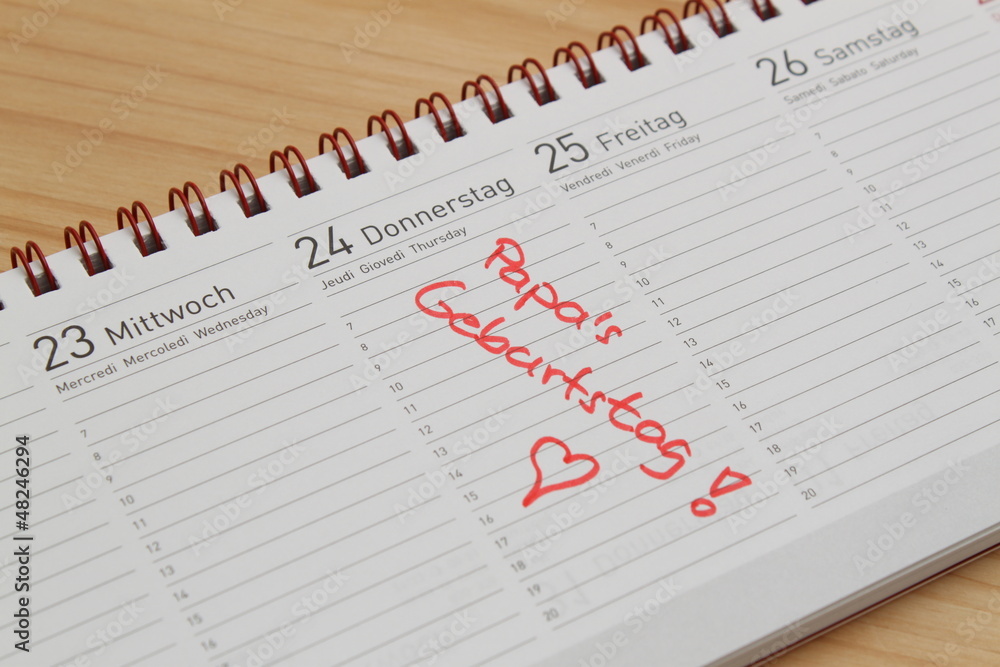 23 Mittwoch
Mercredi Mercoledì Wednesday
7
8
9
10
11
12
13
14
15
16
24 Donnerstag
Jeudi Giovedì Thursday
7
8
9
10
11
12
13
14
15
16
17
18
19
20
Papa's
Geburtstag!
25 Freitag
Vendredi Venerdì Friday
7
8
9
10
11
12
13
14
15
16
17
18
19
20
26 Samstag
Samedi Sabato Saturday
7
8
9
10
11
12
13
14
15
16
17
Adobe Stock | #48246294